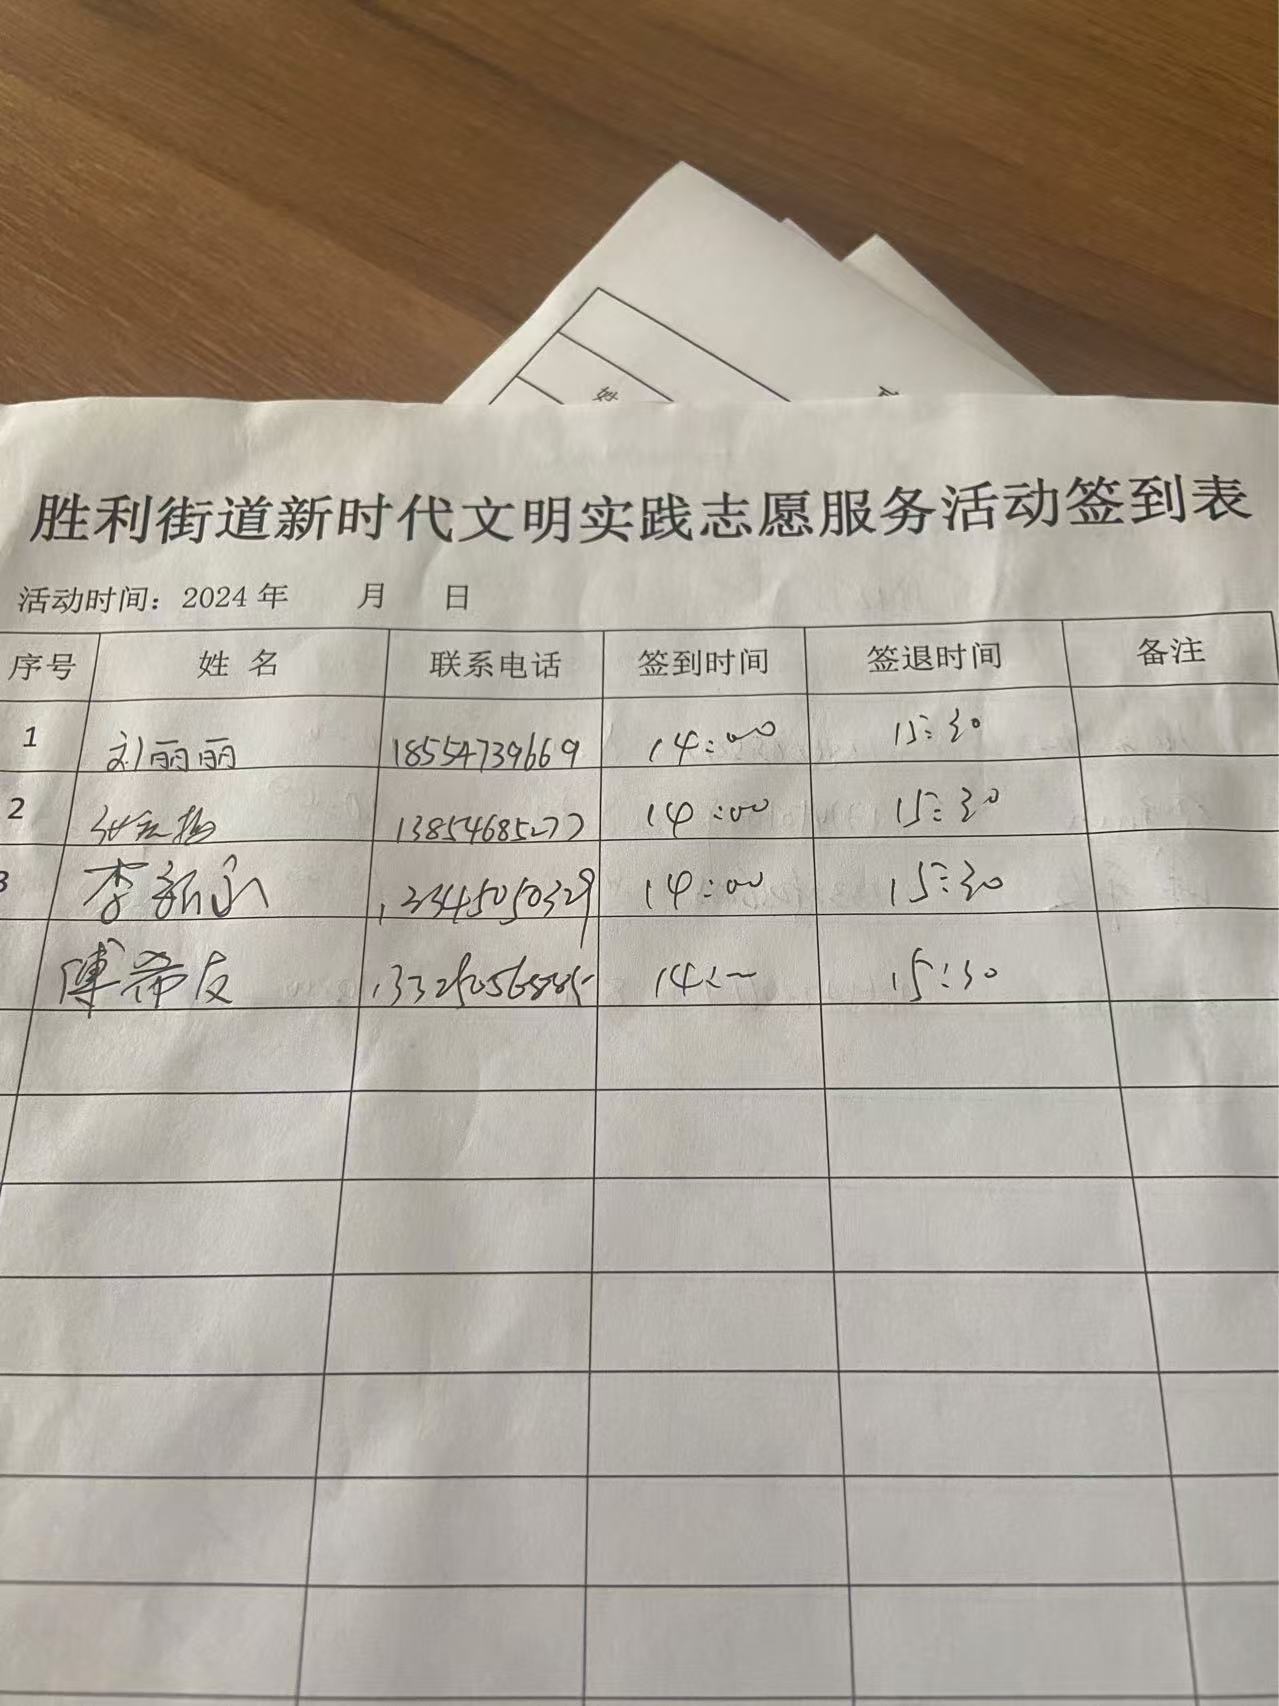 胜利街道新时代文明实践志愿服务活动签到表
活动时间：2024年 月 日
序号 姓名 联系电话 签到时间 签退时间 备注
1 刘丽丽 18554739669 14:00 15:30
2 13854685277 14:00 15:30
3 李新永 14:00 15:30
傅希友 15:30